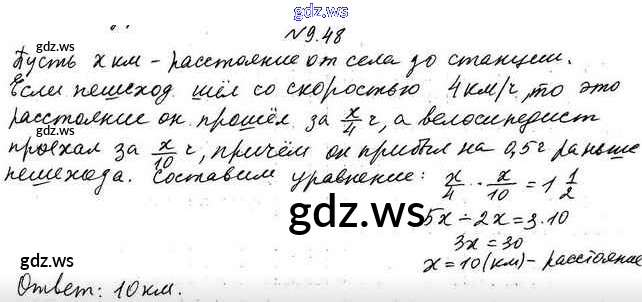 gdz.ws
№9.48
gdz.ws gdz.ws
Пусть x км - расстояние от села до станции.
Если пешеход шёл со скоростью 4 км/ч, то это
расстояние он прошёл за x/4 ч, а велосипедист
gdz.ws gdz.ws
проехал за x/10 ч, причём он прибыл на 0,5 ч раньше
пешехода. Составим уравнение: x/4 - x/10 = 1 1/2
gdz.ws
5x - 2x = 3·10
3x = 30
gdz.ws gdz.ws
x = 10 (км) - расстояние
Ответ: 10 км.
gdz.ws